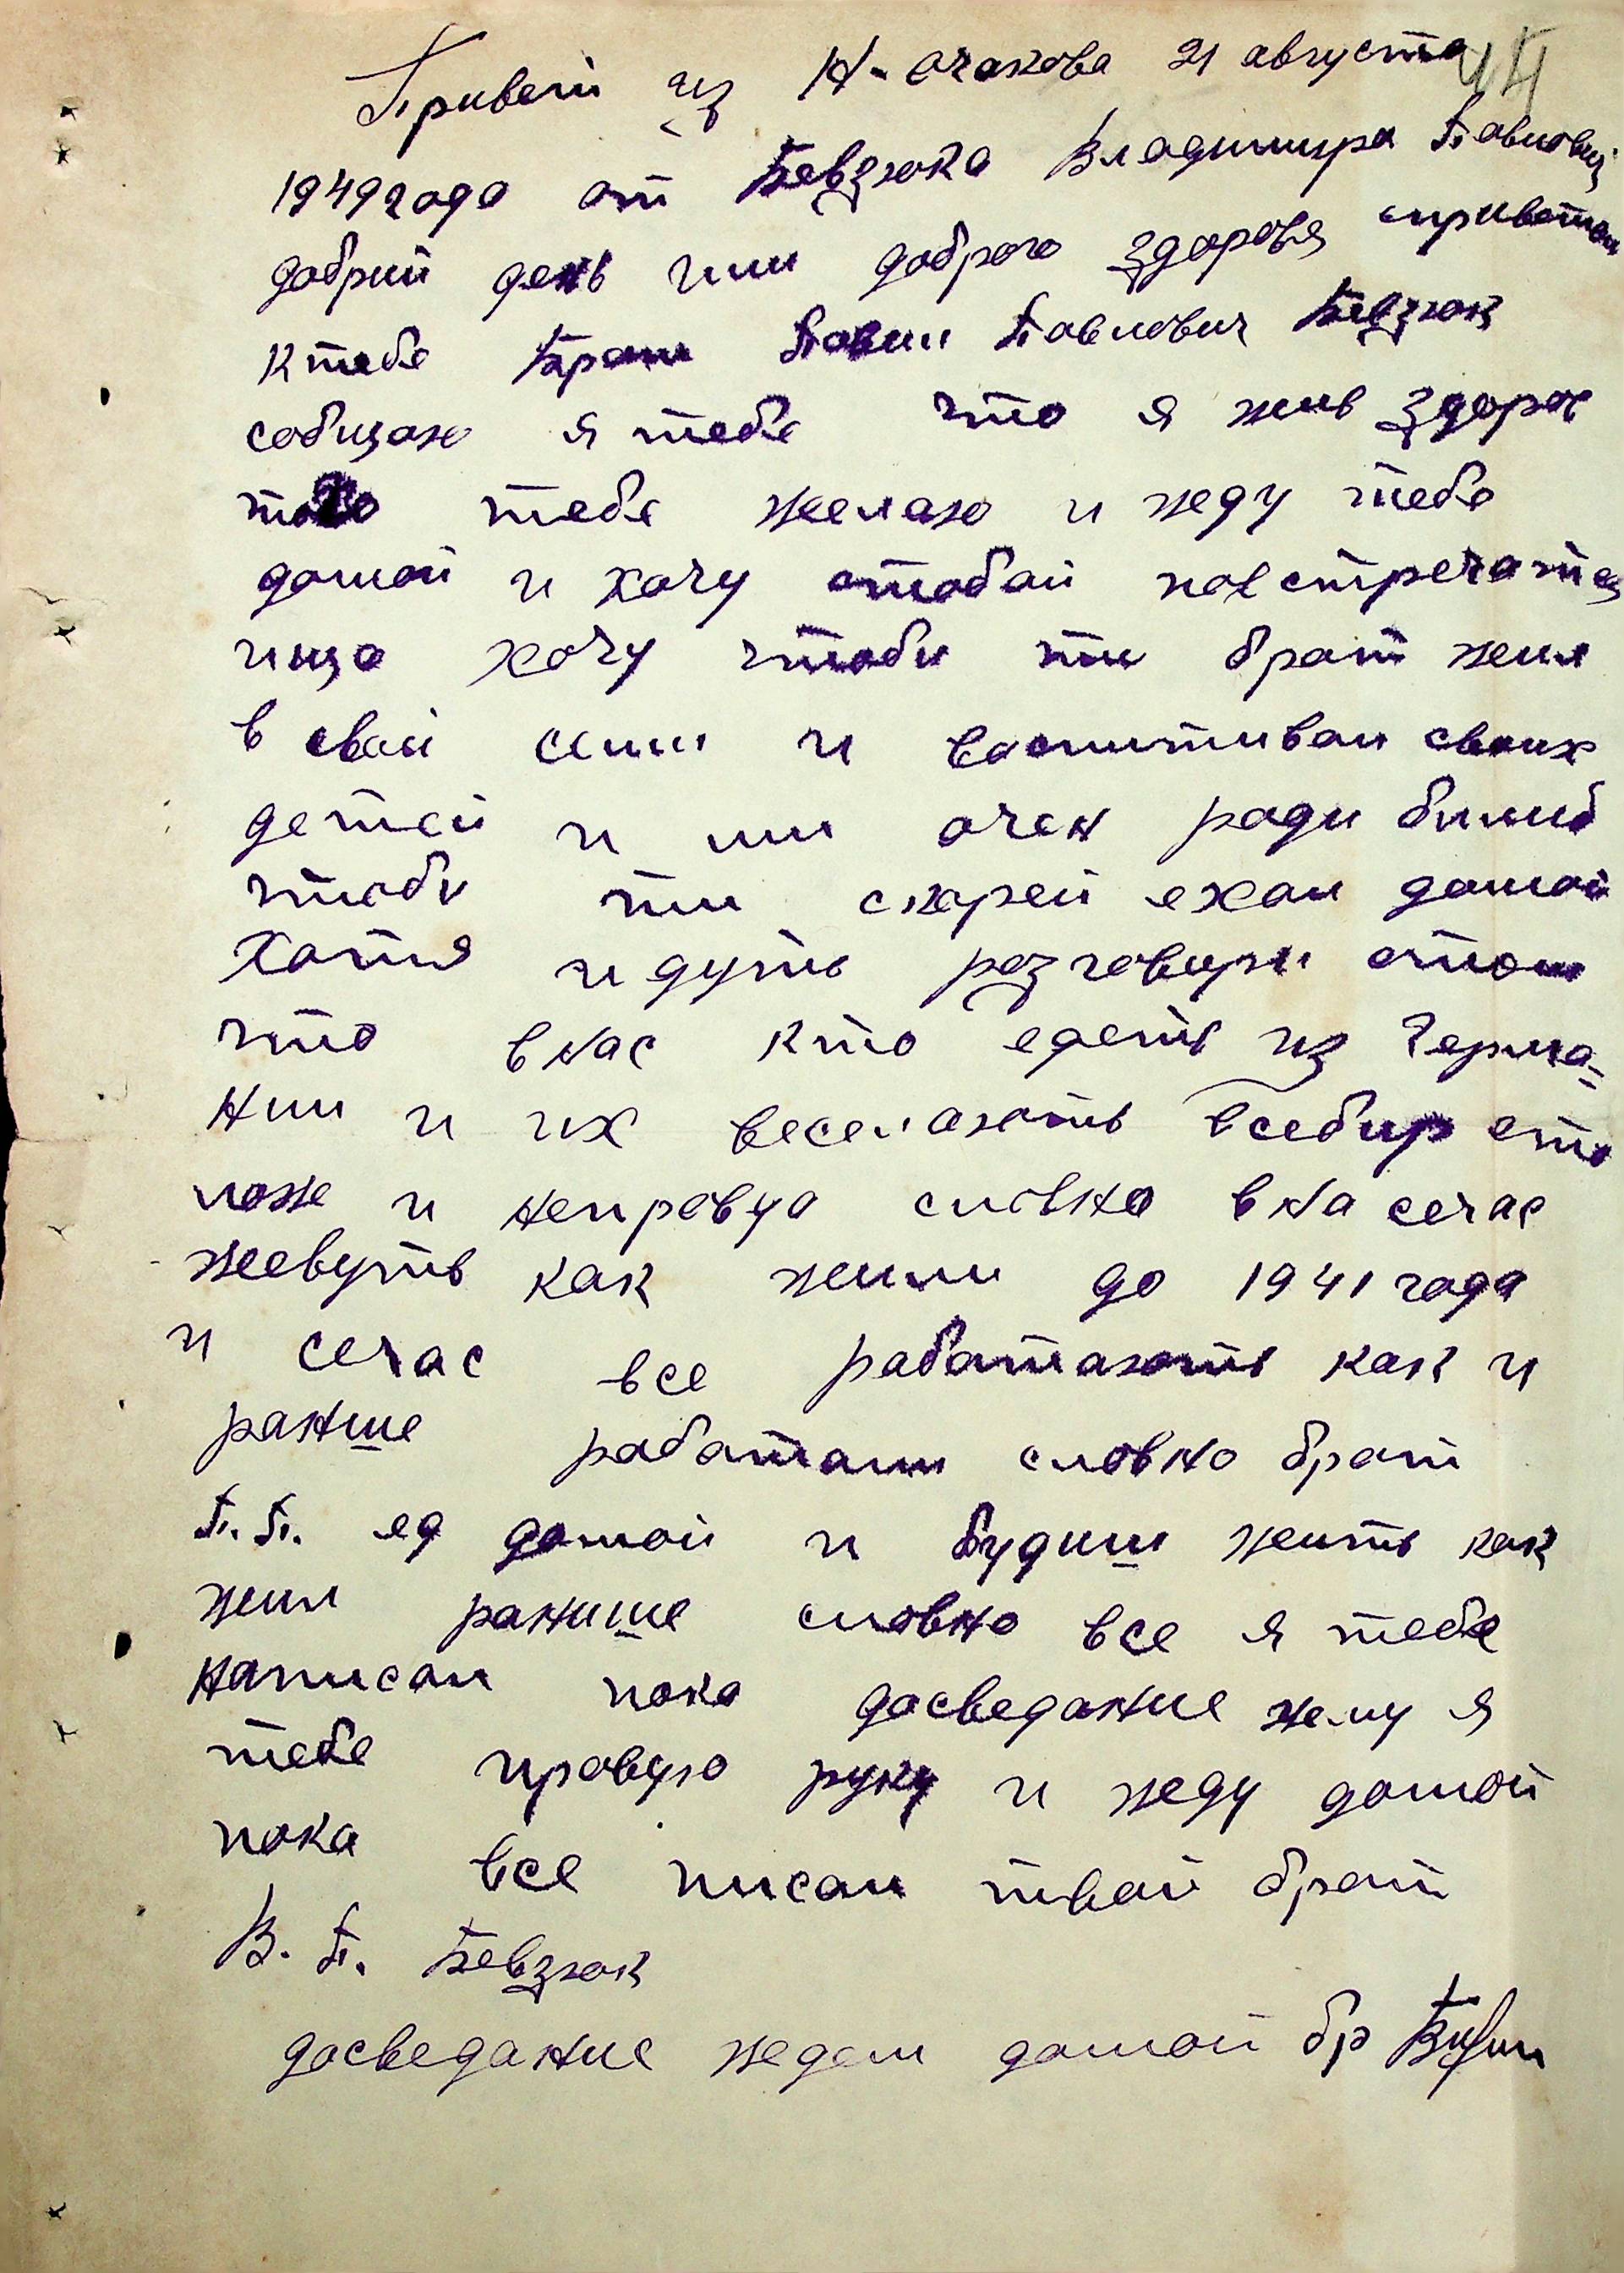 Привет из Н-Очакова 21 августа
1949 года от Бевзюка Владимира Павлович
добрий день или доброго здоровя сприветом
к тебе Брат Павил Павлович Бевзюк
собщаю я тебе что я жив здоров
того тебе желаю и жду тебе
домой и хочу стобой повстречатця
ищо хочу чтоби ти брат жил
в свой семи и воспитивал своих
детей и ми очен ради билиб
чтоби ти скорей ехал домой
хотя идуть розговори отом
что внас кто едеть из Герма-
нии и их веселають всебир ето
ложе и неправда словно вна сечас
жевуть как жили до 1941 года
и сечас все работають как и
ранше работали словно брат
П. П. ед домой и будиш жить как
жил ранише словно все я тебе
написал пока досведание жму я
тебе правую руку и жду домой
пока все писал твой брат
В. П. Бевзюк
досведание ждем домой бр